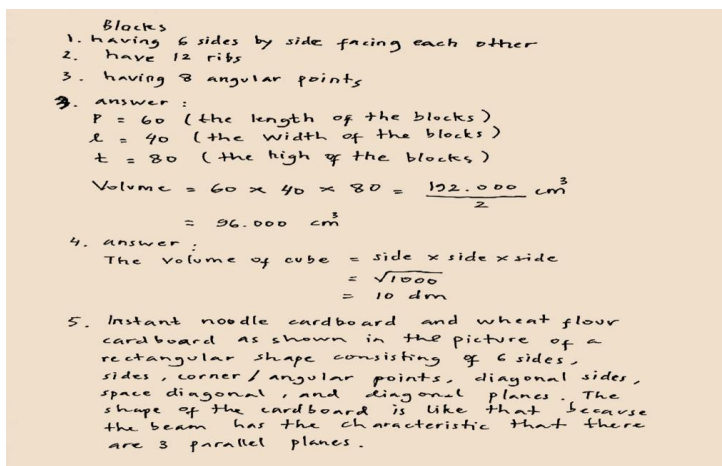 Blocks
1. having 6 sides by side facing each other
2. have 12 ribs
3. having 8 angular points
3. answer :
P = 60 (the length of the blocks)
l = 40 (the width of the blocks)
t = 80 (the high of the blocks)
Volume = 60 x 40 x 80 = 192.000 / 2 cm³
= 96.000 cm³
4. answer :
The volume of cube = side x side x side
= √1000
= 10 dm
5. Instant noodle cardboard and wheat flour
cardboard as shown in the picture of a
rectangular shape consisting of 6 sides,
sides, corner / angular points, diagonal sides,
space diagonal, and diagonal planes. The
shape of the cardboard is like that because
the beam has the characteristic that there
are 3 parallel planes.